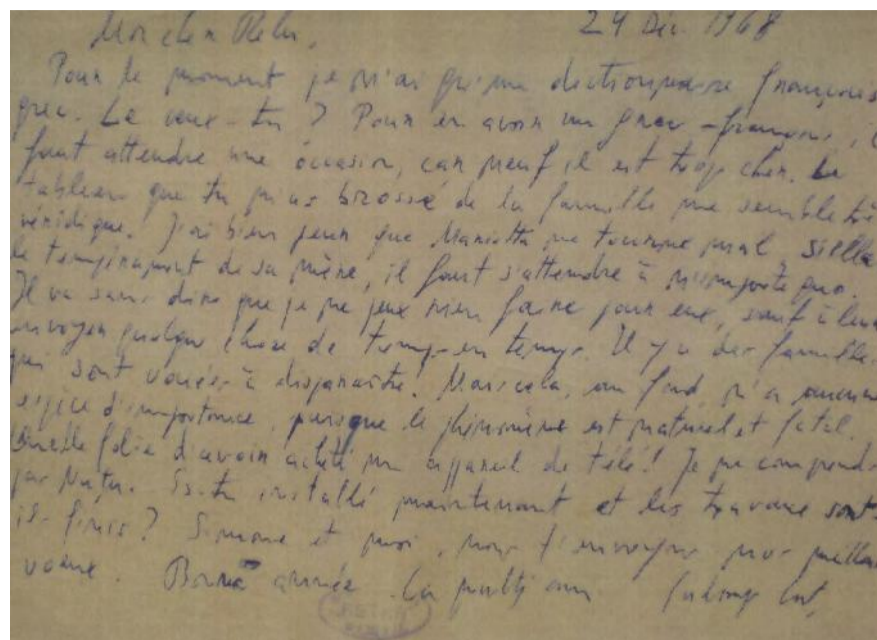 Mon cher Relu, 24 Déc. 1968
Pour le moment je n'ai qu'un dictionnaire français
grec. Le veux-tu ? Pour en avoir un grec-français, il
faut attendre une occasion, car neuf il est trop cher. Le
tableau que tu m'as brossé de la famille me semble très
véridique. J'ai bien peur que Marietta ne tourne mal. Si elle a
le tempérament de sa mère, il faut s'attendre à n'importe quoi.
Il va sans dire que je ne peux rien faire pour eux, sauf à leur
envoyer quelque chose de temps en temps. Il y a des familles
qui sont vouées à disparaître. Mais cela, au fond, n'a aucune
espèce d'importance, puisque le phénomène est naturel et fatal.
Quelle folie d'avoir acheté un appareil de télé ! Je ne comprends
pas Nuţu. Es-tu installé maintenant et les travaux sont-
ils finis ? Simone et moi, nous t'envoyons nos meilleurs
voeux. Bonne année. La mulţi ani